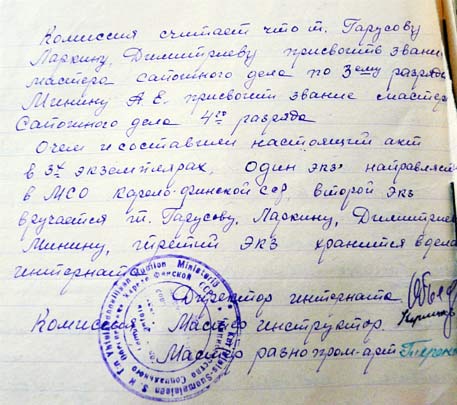 Комиссия считает что т. Гарусову
Ларкину, Димитриеву присвоить звание
мастера сапожного дела по 3ему разряду
Минину А.Е. присвоит звание мастер
Сапожного дела 4го разряда
Очем и составлен настоящий акт
в 3х экземплярах, Один экз направляется
в МСО Карело-финской сср, второй Экз
вручается т. Гарусову, Ларкину, Димитриев
Минину, третий Экз хранится в дела
интернат
Директор интерната
Комиссия Мастер инструктор
Мастер разнопром-арт